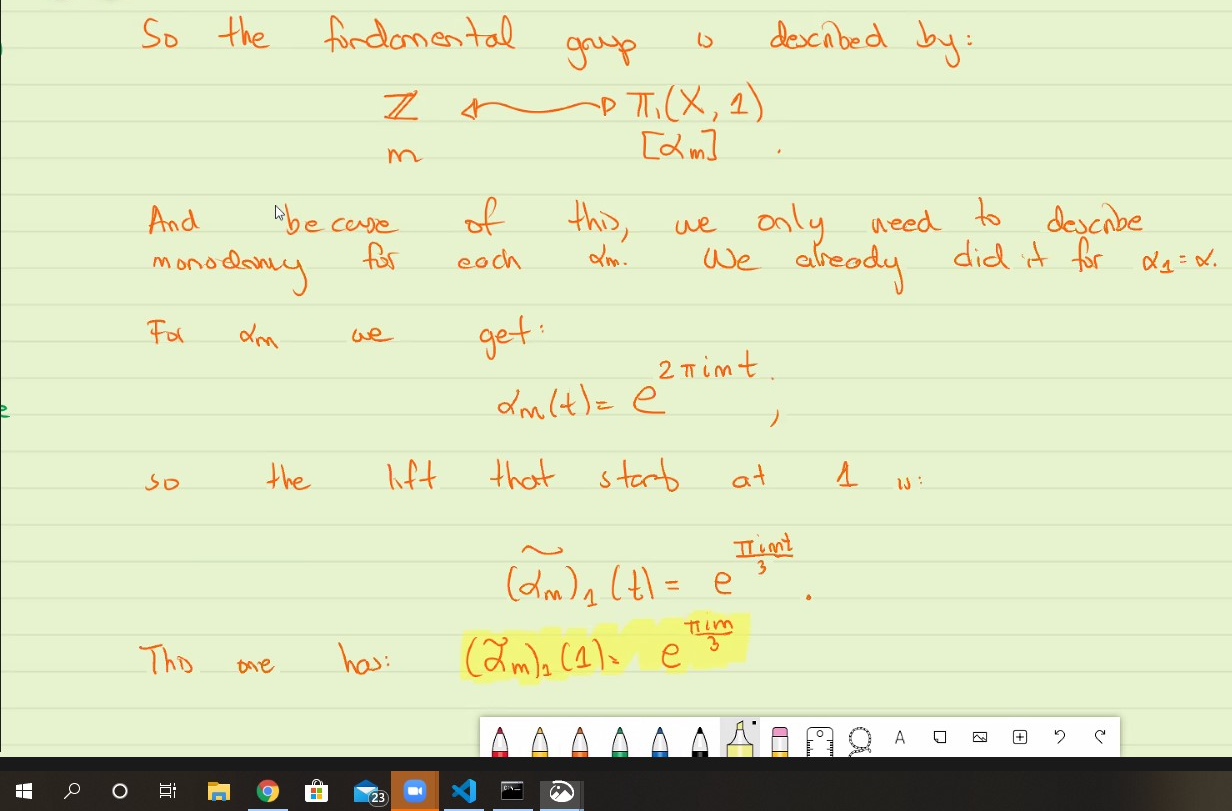 So the fundamental group is described by:
ℤ ⟷ π₁(X, 1)
m [αₘ] .
And because of this, we only need to describe
monodromy for each αₘ. We already did it for α₁ = α.
For αₘ we get:
αₘ(t) = e^{2πimt},
so the lift that starts at 1 is:
(α̃ₘ)₁(t) = e^{πimt/3}.
This one has: (α̃ₘ)₁(1) = e^{πim/3}
A
23